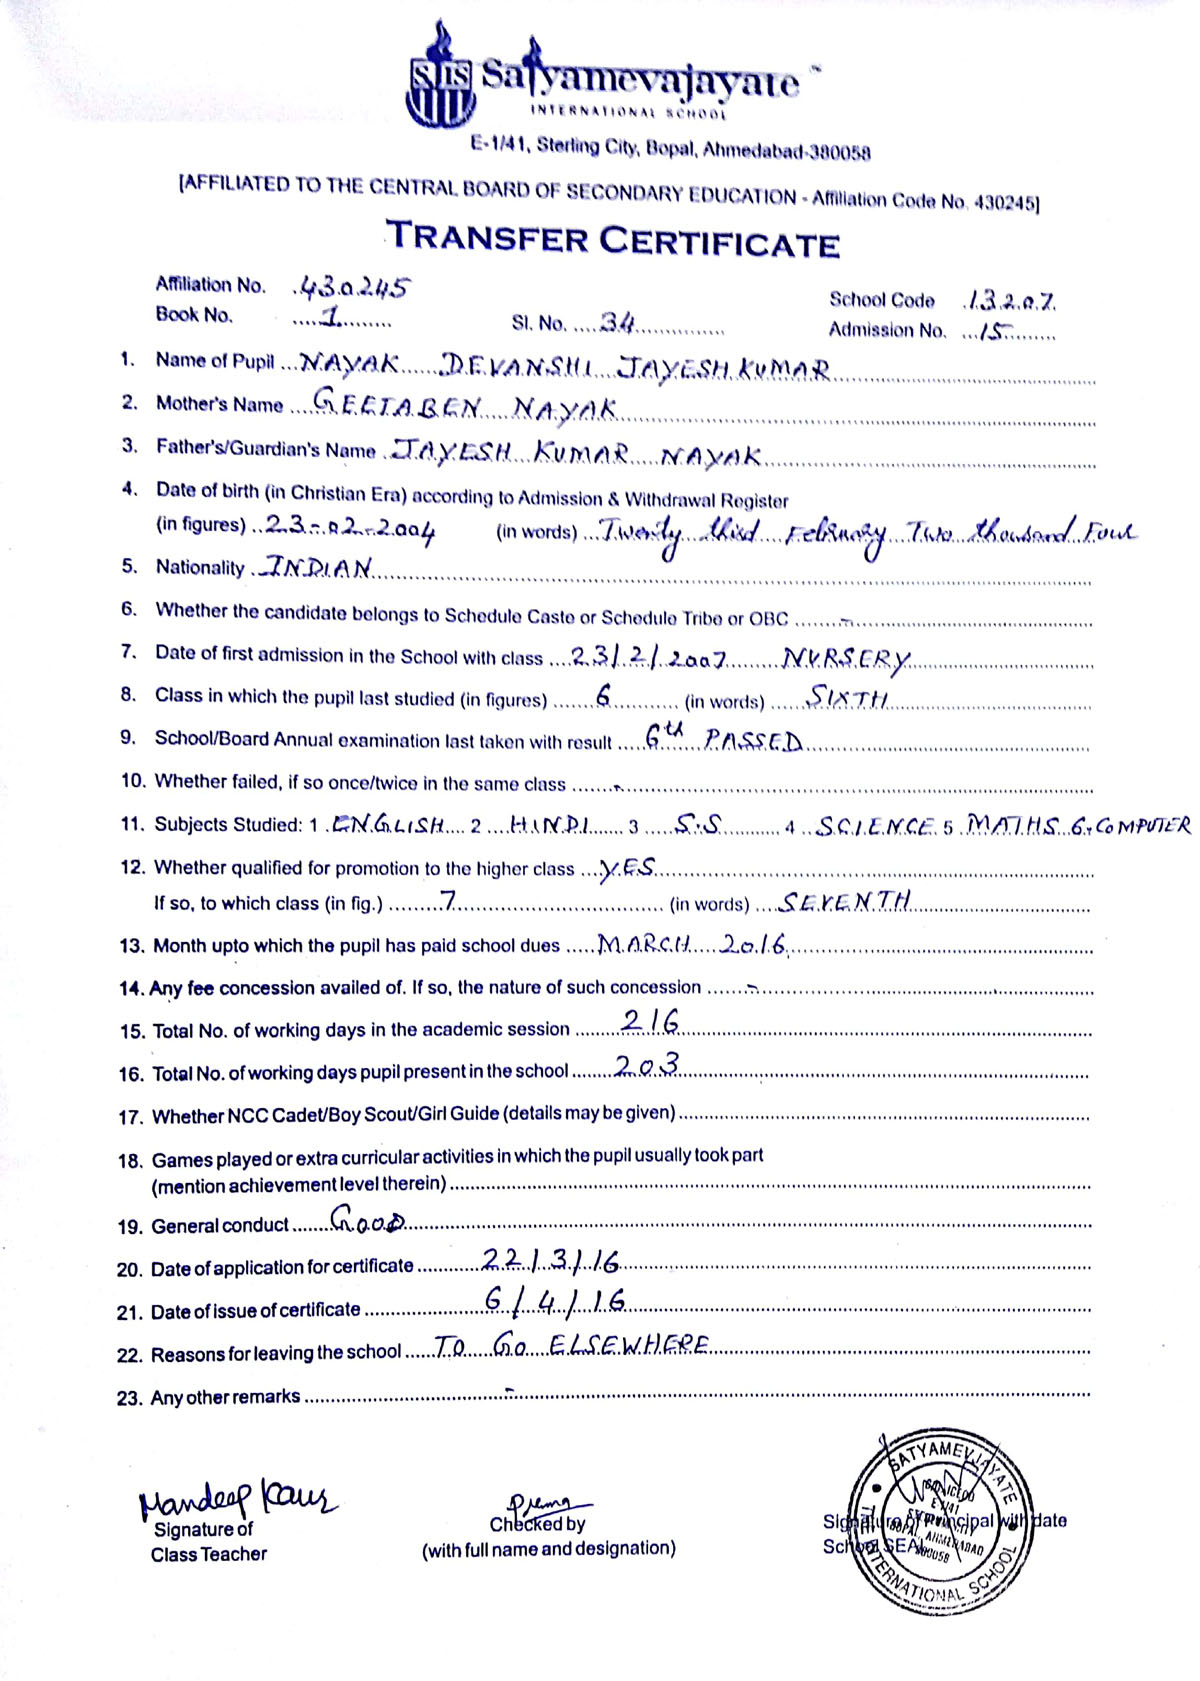 SIS Satyamevajayate ™
INTERNATIONAL SCHOOL
E-1/41, Sterling City, Bopal, Ahmedabad-380058
[AFFILIATED TO THE CENTRAL BOARD OF SECONDARY EDUCATION - Affiliation Code No. 430245]
TRANSFER CERTIFICATE
Affiliation No. 430245 School Code 13207
Book No. 1 Sl. No. 34 Admission No. 15
1. Name of Pupil NAYAK DEVANSHI JAYESHKUMAR
2. Mother's Name GEETABEN NAYAK
3. Father's/Guardian's Name JAYESH KUMAR NAYAK
4. Date of birth (in Christian Era) according to Admission & Withdrawal Register
(in figures) 23-02-2004 (in words) Twenty third February Two thousand Four
5. Nationality INDIAN
6. Whether the candidate belongs to Schedule Caste or Schedule Tribe or OBC -
7. Date of first admission in the School with class 23/2/2007 NURSERY
8. Class in which the pupil last studied (in figures) 6 (in words) SIXTH
9. School/Board Annual examination last taken with result 6th PASSED
10. Whether failed, if so once/twice in the same class -
11. Subjects Studied: 1 ENGLISH 2 HINDI 3 S.S 4 SCIENCE 5 MATHS 6. COMPUTER
12. Whether qualified for promotion to the higher class YES
If so, to which class (in fig.) 7 (in words) SEVENTH
13. Month upto which the pupil has paid school dues MARCH 2016
14. Any fee concession availed of. If so, the nature of such concession -
15. Total No. of working days in the academic session 216
16. Total No. of working days pupil present in the school 203
17. Whether NCC Cadet/Boy Scout/Girl Guide (details may be given)
18. Games played or extra curricular activities in which the pupil usually took part
(mention achievement level therein)
19. General conduct GOOD
20. Date of application for certificate 22/3/16
21. Date of issue of certificate 6/4/16
22. Reasons for leaving the school TO GO ELSEWHERE
23. Any other remarks -
Mandeep Kaur
Signature of
Class Teacher
Prema
Checked by
(with full name and designation)
Signature of Principal with date
School SEAL
SATYAMEVJAYATE
INTERNATIONAL SCHOOL
E-1/41
BOPAL, AHMEDABAD
380058